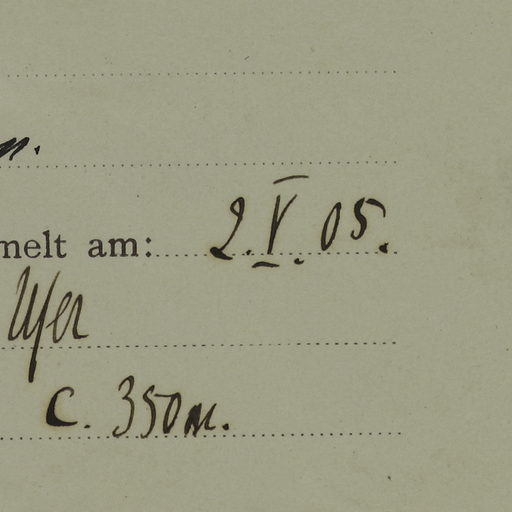 n.
melt am: 2.V.05.
Ufer
c. 350m.